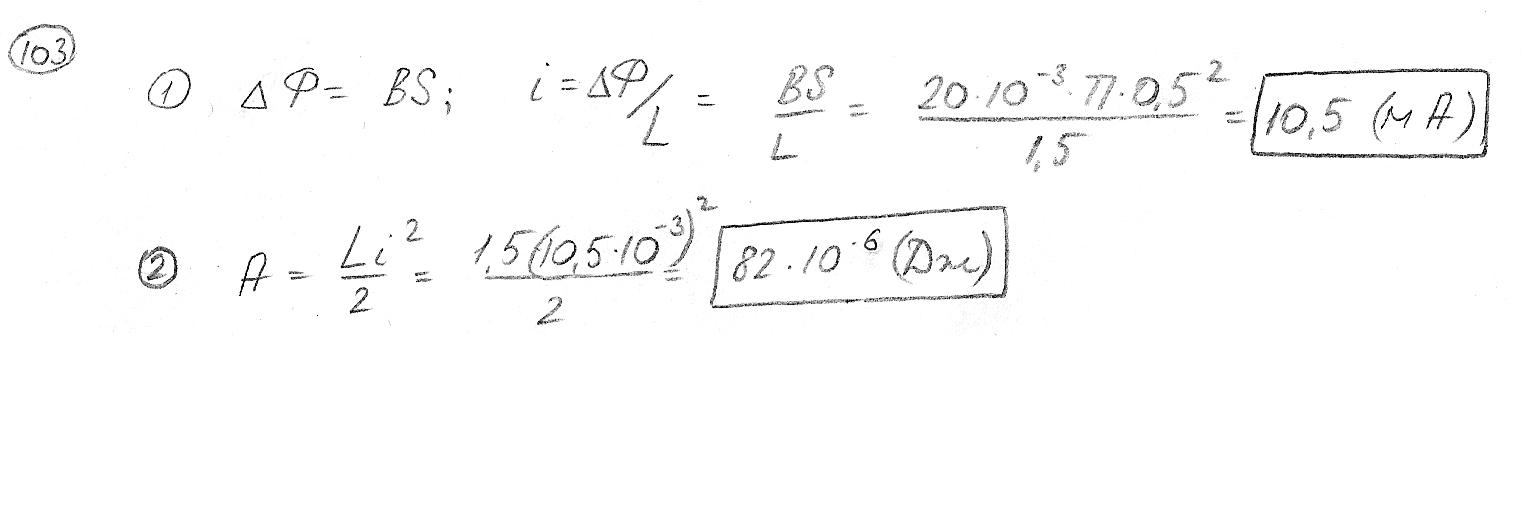 103
① ΔΦ = BS; i = ΔΦ/L = BS/L = 20·10⁻³·π·0,5²/1,5 = 10,5 (мА)
② A = Li²/2 = 1,5(10,5·10⁻³)²/2 = 82·10⁻⁶ (Дж)